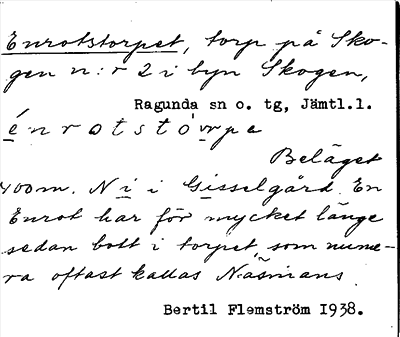 Enrotstorpet, torp på Sko-
gen n:r 2 i byn Skogen,
Ragunda sn o. tg, Jämtl.l.
énrotstòrpe
Beläget
400m. N i i Gisselgård. En
Enrot har för mycket länge
sedan bott i torpet som nume-
ra oftast kallas Näsmans.
Bertil Flemström 1938.